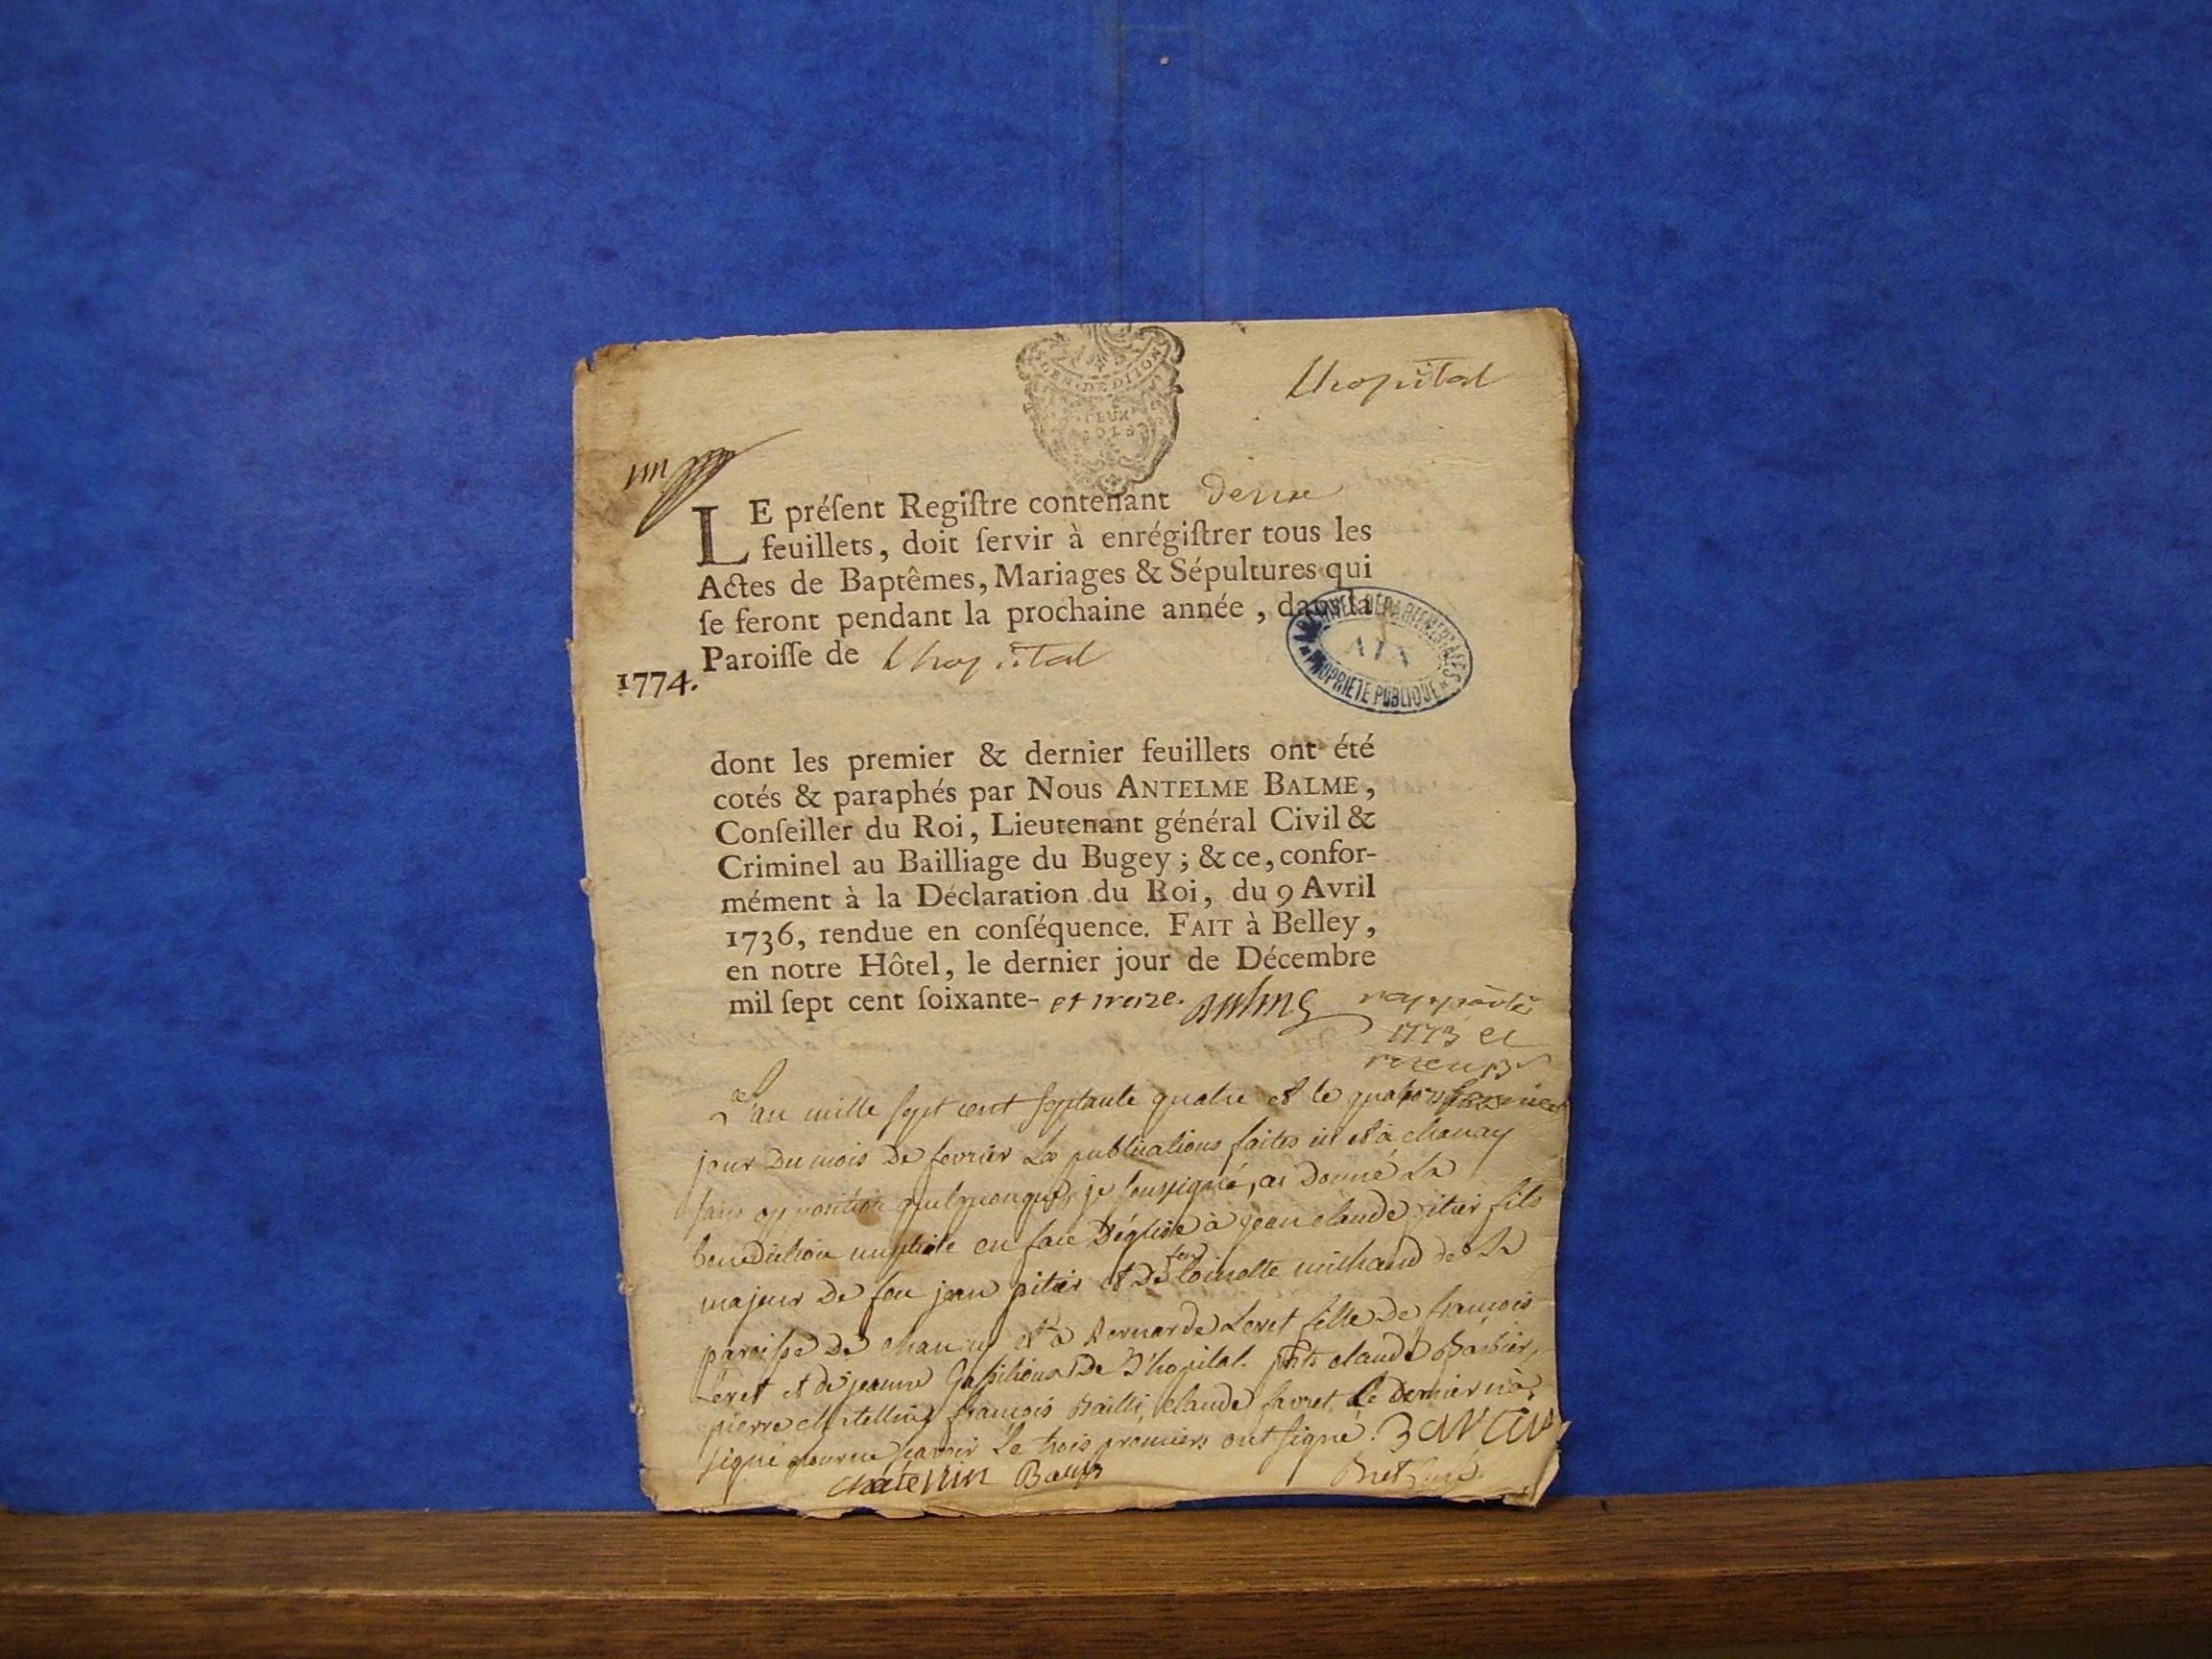 Lhopital
GEN. DE DIJON
DEUX
SOLS
un
LE préſent Regiſtre contenant deux
feuillets, doit ſervir à enrégiſtrer tous les
Actes de Baptêmes, Mariages & Sépultures qui
ſe feront pendant la prochaine année, dans la
Paroiſſe de Lhopital
1774.
ARCHIVES DEPARTEMENTALES
AIN
PROPRIETE PUBLIQUE
dont les premier & dernier feuillets ont été
cotés & paraphés par Nous ANTELME BALME,
Conſeiller du Roi, Lieutenant général Civil &
Criminel au Bailliage du Bugey ; & ce, confor-
mément à la Déclaration du Roi, du 9 Avril
1736, rendue en conſéquence. FAIT à Belley,
en notre Hôtel, le dernier jour de Décembre
mil ſept cent ſoixante- et treize. Balme
rapporté
1773 et
L'an mille sept cent septante quatre et le
jour du mois de fevrier les publications faites ici et à chanay
sans opposition quelquonque, je soussigné, ai donné la
benediction nuptiale en face d'église à jean claude pitier fils
majeur de feu jean pitier et de feue toinette michaud de la
paroisse de chanay et à Bernarde Levet fille de françois
Levet et de jeanne de L'hopital. pnts claude Barbier,
pierre chatellin françois Bailli, claude favret. Le dernier n'a
signé pour ne savoir Le trois premiers ont signé. Barbier
chatellin Bailly